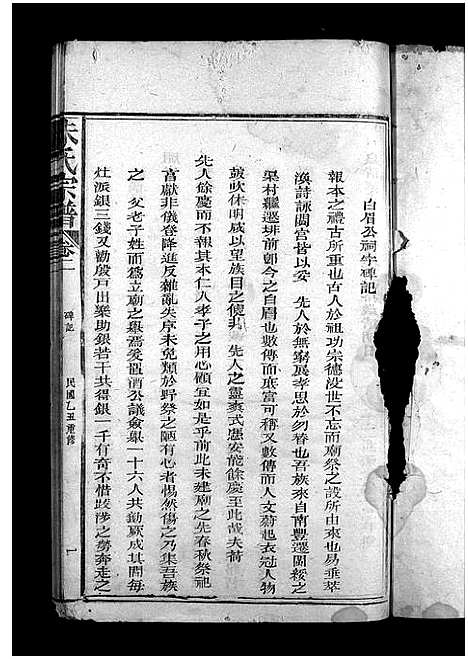 白眉公祠宇碑記
報本之禮古所重也古人於祖功宗德没世不忘而廟祭之設所由來也易垂萃
渙詩詠閟宫皆以妥 先人於無窮展孝思於勿替也吾族來自南豐遷閩綏之
渠村繼遷垪前郡今之自明也數傳而庶富可稱又數傳而人文蔚起衣冠人物
鼓吹休明咸以望族目之使非 先人之靈爽式憑安能餘慶至此哉夫荷
先人餘慶而不報其本仁人孝子之用心顧宜如是乎前此未建廟之先春秋祭祀
盲獻非儀登降進反雜亂失序未免類於野祭之陋有心者惕然傷之乃集吾族
之 父老子姓而爲立廟之舉焉爰酌公議僉舉一十六人共勷厥成其間每
灶派銀三錢又勸殷戸出樂助銀若干共得銀一千有奇不惜跋涉之勞奔走之
朱氏宗譜
卷一
碑記
民國乙丑重修
一